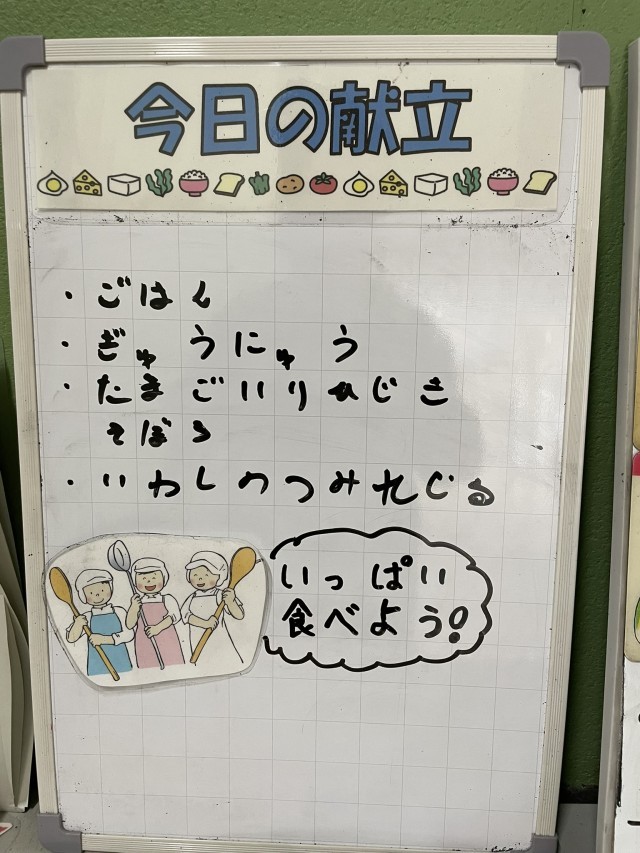 今日の献立
・ごはん
・ぎゅうにゅう
・たまごいりひじき
そぼろ
・いわしのつみれじる
いっぱい
食べよう!